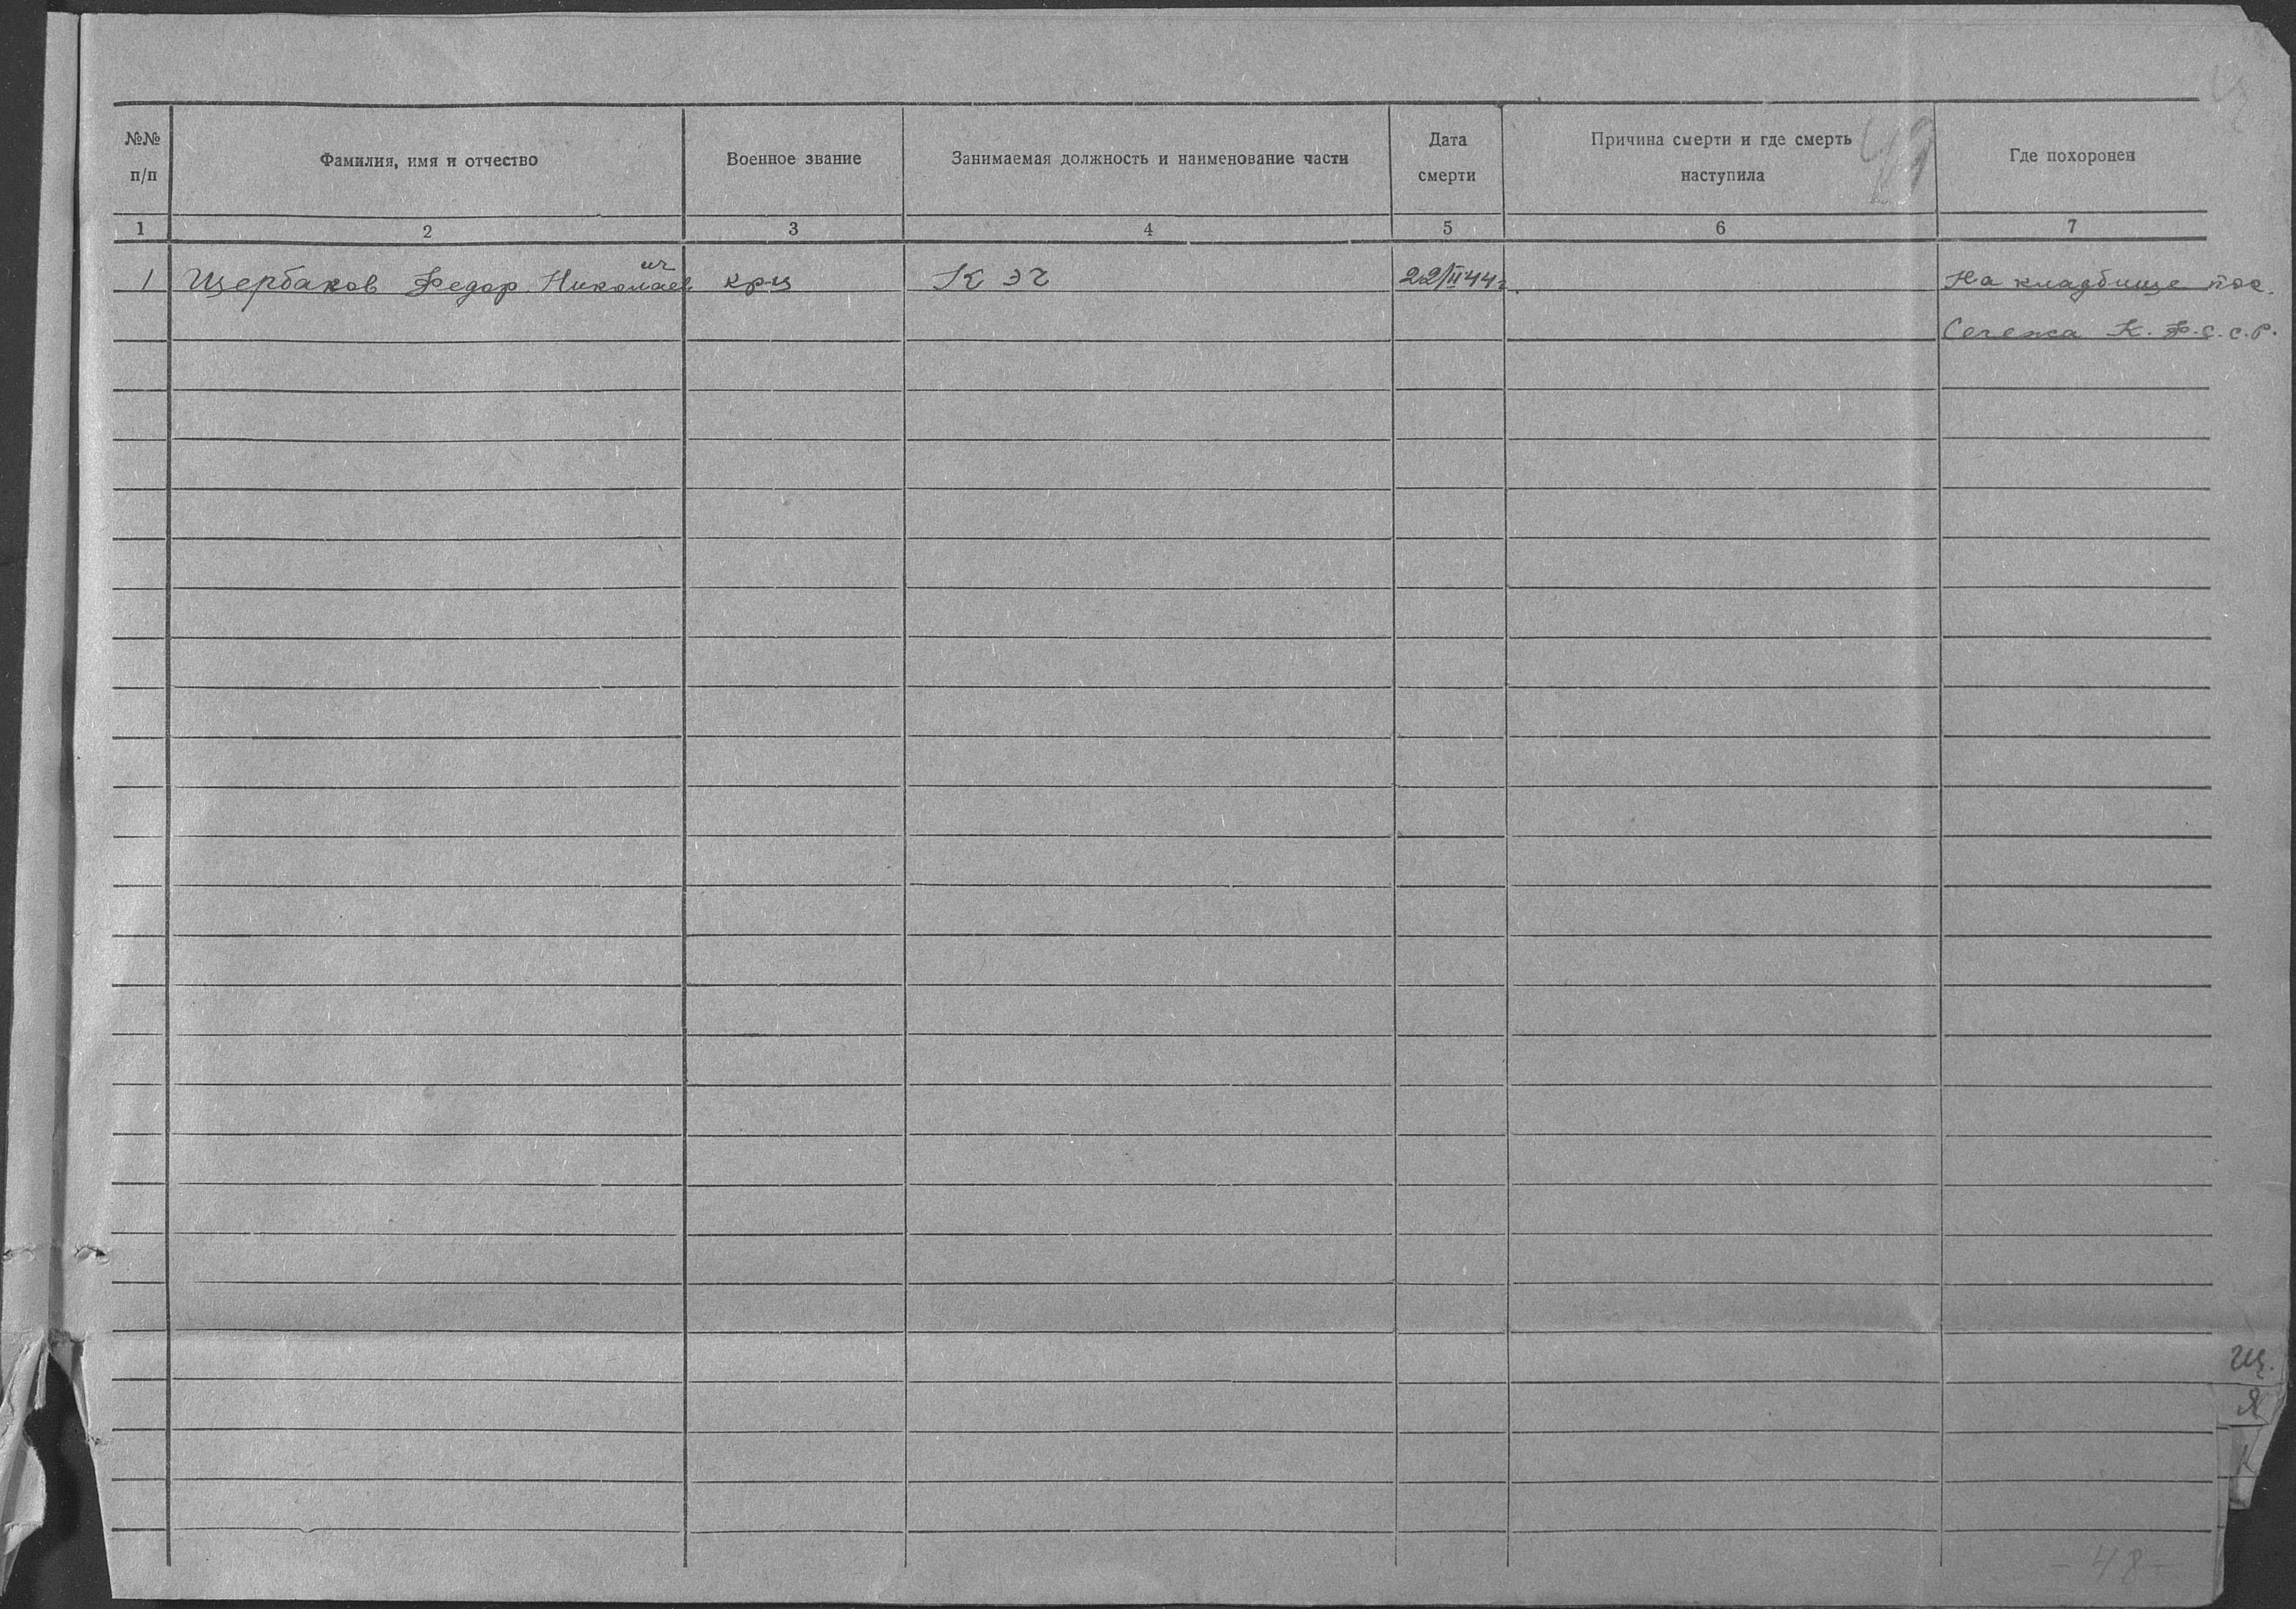 49
№№ п/п Фамилия, имя и отчество Военное звание Занимаемая должность и наименование части Дата смерти Причина смерти и где смерть наступила Где похоронен
1 2 3 4 5 6 7
1 Щербаков Федор Николаевич кр-ц К ЭЧ 22/II 44 г. На кладбище пос.
Сегежа К. Ф. С. С. Р.
Щ.
Я
К
- 48 -